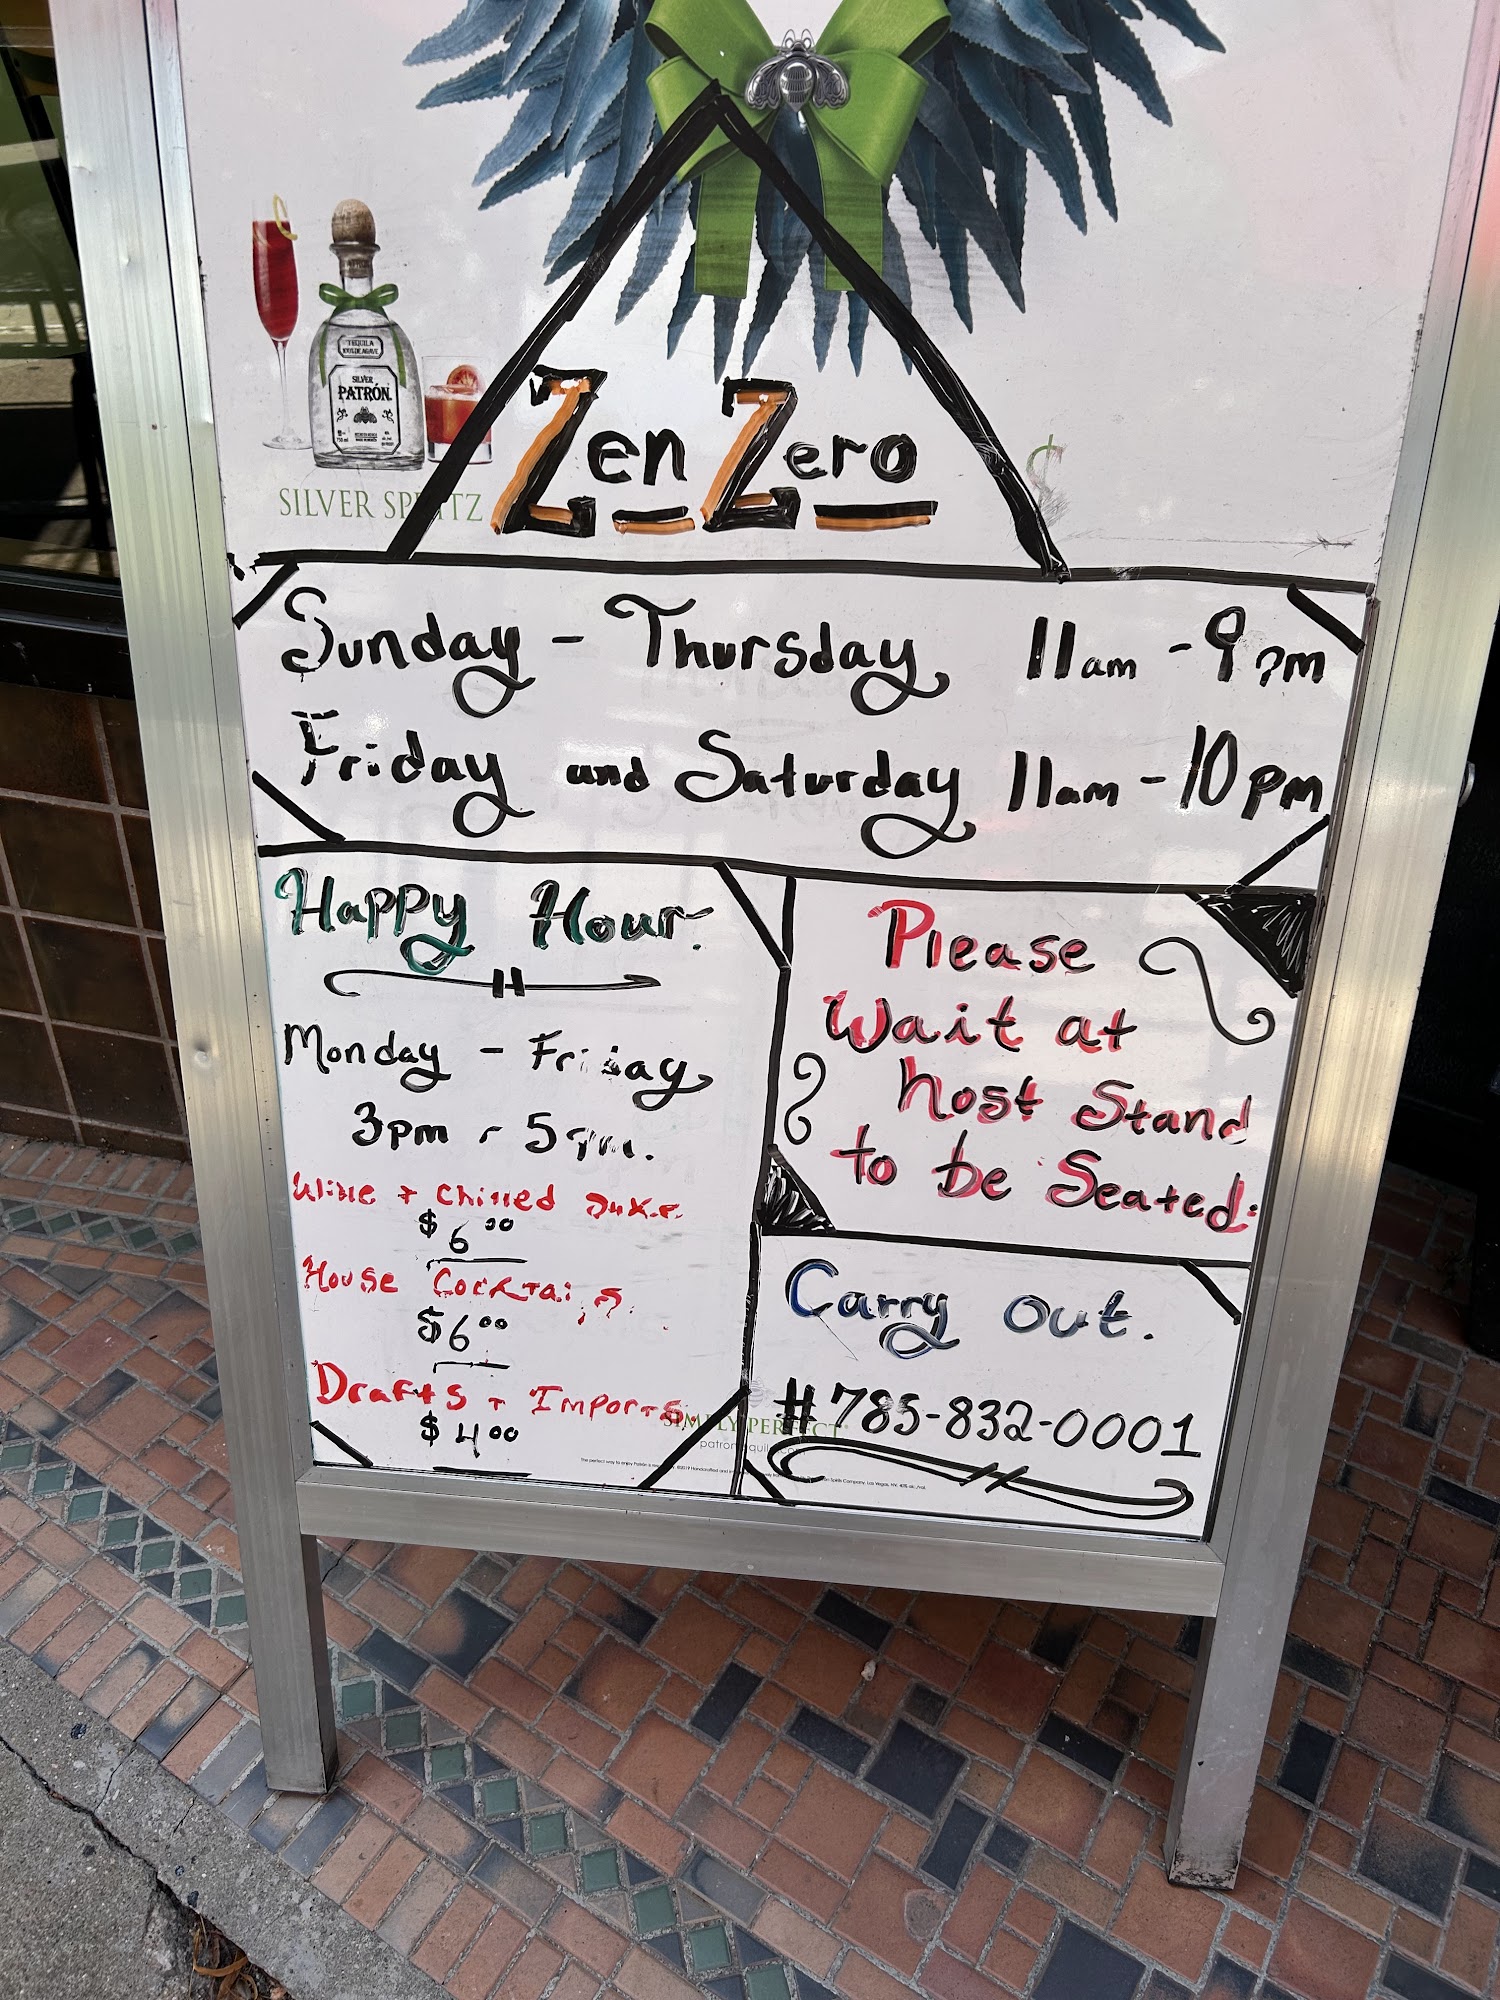 TEQUILA
100% DE AGAVE
SILVER
PATRÓN
SILVER SPRITZ
Zen Zero
Sunday - Thursday 11am - 9pm
Friday and Saturday 11am - 10pm
Happy Hour:
Monday - Friday
3pm - 5pm.
Wine + Chilled Sake.
$6.00
House Cocktails.
$6.00
Drafts + Imports.
$4.00
Please
Wait at
host Stand
to be Seated:
Carry out.
#785-832-0001
SIMPLY PERFECT